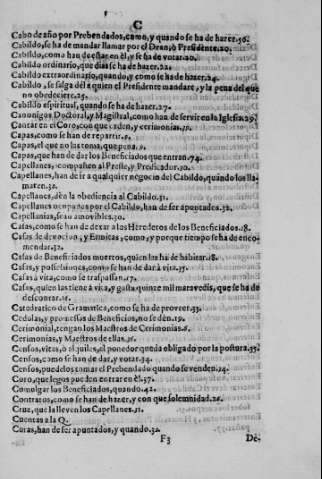 C
Cabo de año por Prebendados, como, y quando se ha de hazer. 30.
Cabildo, se ha de mandar llamar por el Dean, ò Presidente. 20.
Cabildo, como han de estar en èl, y se ha de votar. 20.
Cabildo ordinario, que dias se ha de hazer. 22.
Cabildo extraordinario, quando, y como se ha de hazer. 24.
Cabildo, se salga dèl à quien el Presidente mandare, y la pena del que
no obedeciere. 25.
Cabildo espiritual, quando se ha de hazer. 27.
Canonigos Doctoral, y Magistral, como han de servir en la Iglesia. 29.
Cantar en el Coro, con que orden, y cerimonias.
Capas, como se han de repartir. 9.
Capas, el que no las toma, que pena. 9.
Capas, que han de dar los Beneficiados que entran. 74.
Capellanes, acompañen al Preste, y Predicador. 30.
Capellanes, han de ir a qualquier negocio del Cabildo, quando los lla-
maren. 32.
Capellanes, dèn la obediencia al Cabildo. 31.
Capellanes ocupados por el Cabildo, han de ser apuntados. 32.
Capellanias, sean amovibles. 30.
Casas, como se han de dexar à los Herederos de los Beneficiados. 18.
Casas de devocion, y Ermitas, como, y porque tiempo se ha de enco-
mendar. 32.
Casas de Beneficiados muertos, quien las ha de habitar. 18.
Casas, y possessiones, como se han de dar à vida. 37.
Casas à vida, como se traspassan. 17.
Casas, quien las tiene à vida, y gasta quinze mil maravedis, que se ha de
descontar.
Catedratico de Gramatica, como se ha de proveer. 33.
Cedulas, y provisiones de Beneficios, no se dèn. 19.
Cerimonial, tengan los Maestros de Cerimonias. 8.
Cerimonias, y Maestros de ellas.
Censos, vitas, ò alquiles, al ponedor queda obligado por la postura. 35.
Censos, como se han de dar, y votar. 34.
Censos, puedelos tomar el Prebendado quando se venden. 14.
Coro, que legos pueden entrar en èl. 57.
Comulgar los Beneficiados, quando. 42.
Contratos, como se han de hazer, y con que solemnidad. 28.
Cruz, que la lleven los Capellanes. 31.
Cuentas a la Q.
Curas, han de ser apuntados, y quando. 32.
F3
De-